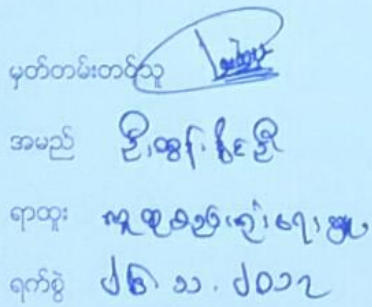 မှတ်တမ်းတင်သူ
အမည် ဦးထွန်းနိုင်ဦး
ရာထူး လူထုစည်းရုံးရေးမှူး
ရက်စွဲ ၂၆.၁၁.၂၀၁၇